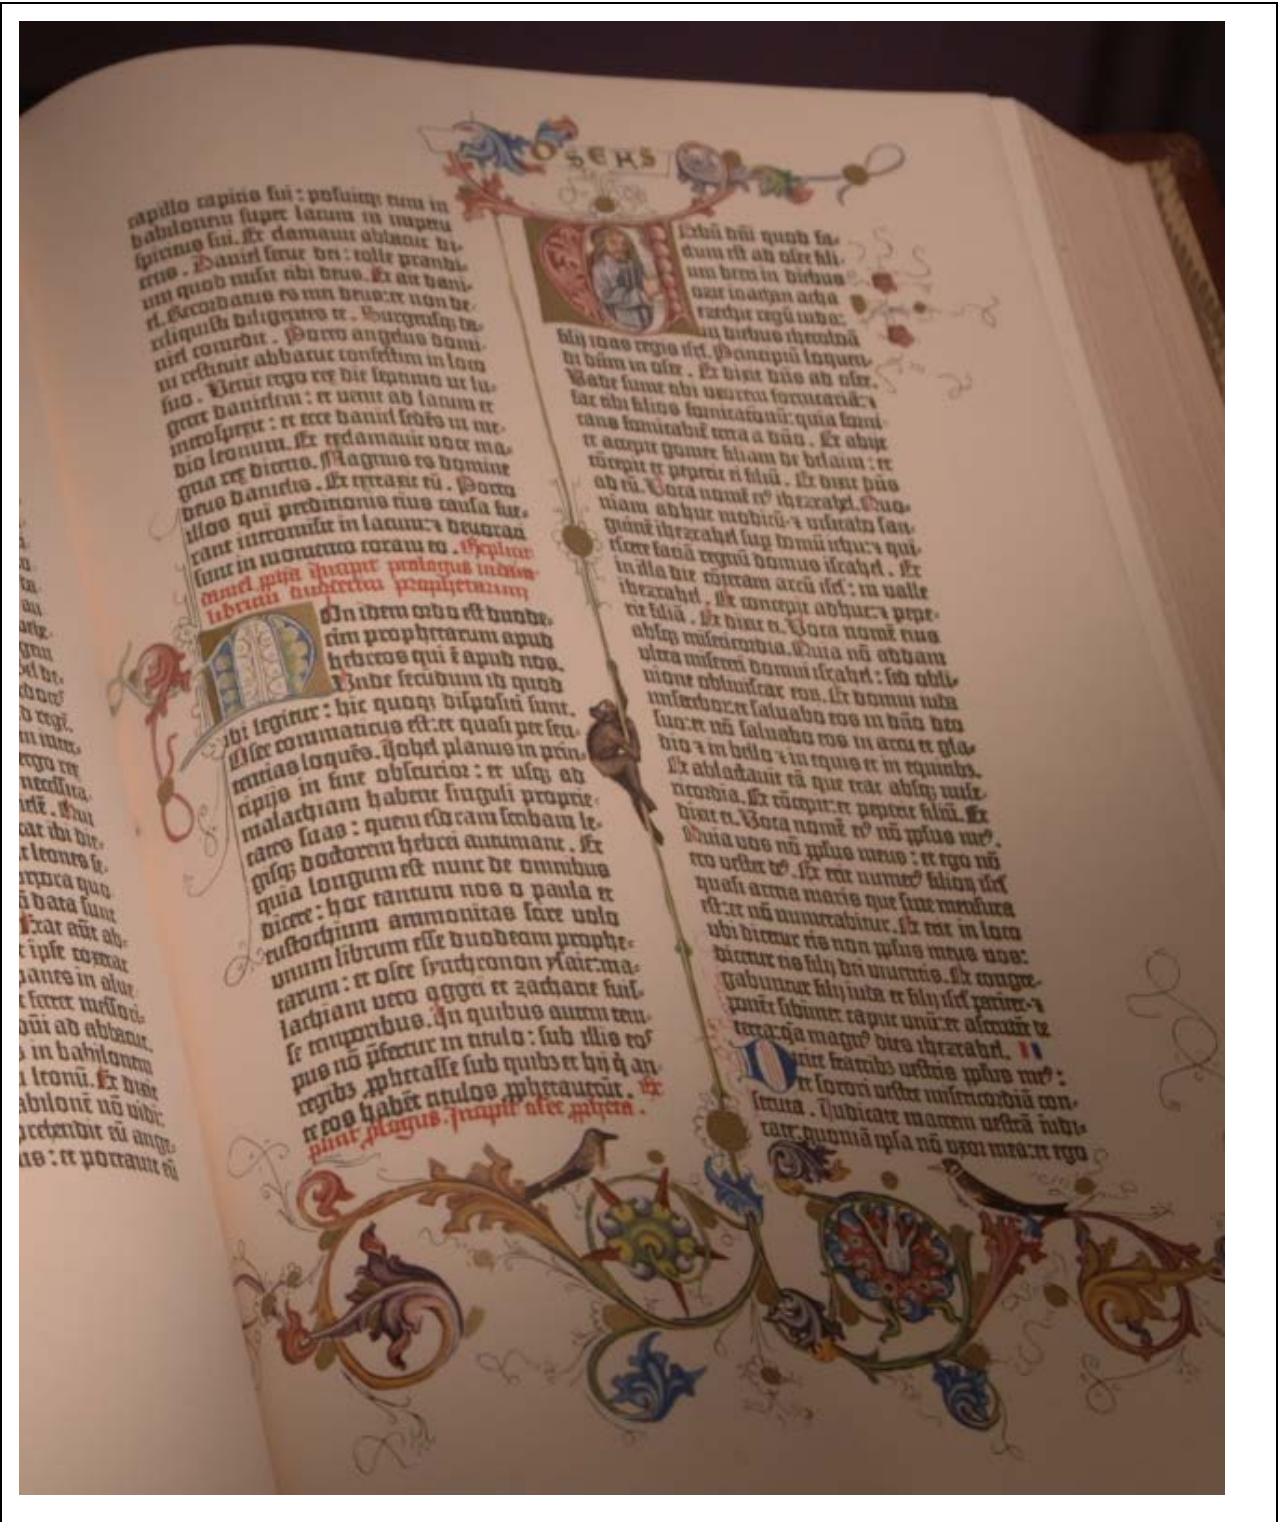 necessita
cat ibi die
t leones se
data sunt
t ipse coxerat
t ferret messori
dñi ad abbacuc
in babilonem
leonū. Et dixit
abiloné nō vidi
OSEAS
capillo capitis sui: posuitq; eum in
babilonem super lacum in impetu
spiritus sui. Et clamavit abbacuc di-
cens. Daniel serve dei: tolle prandi-
um quod misit tibi deus. Et ait dani-
el. Recordatus es mei deus: et non de-
reliquisti diligentes te. Surgensq; da-
niel comedit. Porro angelus domi-
ni restituit abbacuc confestim in loco
suo. Venit ergo rex die septimo ut lu-
geret danielem: et venit ad lacum et
introspexit: et ecce daniel sedēs in me-
dio leonum. Et exclamavit voce ma-
gna rex dicens. Magnus es domine
deus danielis. Et extraxit eū. Porro
illos qui perditionis eius causa fue-
rant intromisit in lacum: ⁊ devorati
sunt in momento coram eo. Explicit
daniel ꝓpha Incipit prologus in duo-
librum duodecim prophetarum
Non idem ordo est duode-
cim prophetarum apud
hebreos qui ē apud nos.
Unde secūdum id quod
ibi legitur: hic quoq; dispositi sunt.
Osee commaticus est: et quasi per sen-
tentias loquēs. Johel planus in prin-
cipijs in fine obscurior: et usq; ad
malachiam habent singuli proprie-
tates suas: quem esdram scribam le-
gisq; doctorem hebrei autumant. Et
quia longum est nunc de omnibus
dicere: hoc tantum vos o paula et
eustochium ammonitas fore volo
unum librum esse duodecim prophe-
tarum: et osee synchronon ysaie: ma-
lachiam vero aggei et zacharie fuis-
se temporibus. In quibus autem tem-
pus nō p̄fertur in titulo: sub illis eos
regibz ꝓphetasse sub quibz et hij q̇ an-
te eos habēt titulos ꝓphetaverūt. Ex-
plicit ꝓlogus. Incipit osee ꝓpheta.
Verbū dñi quod fa-
ctum est ad osee fili-
um beeri in diebus
ozie ioathan achaz
ezechie regū iuda:
in diebus iheroboā
filij ioas regis isrł. Principiū loquen-
di dño in osee. Et dixit dñs ad osee.
Vade sume tibi uxorem fornicariā: ⁊
fac tibi filios fornicationū: quia forni-
cans fornicabit̄ terra a dño. Et abijt
et accepit gomer filiam debelaim: et
cōcepit et peperit ei filiū. Et dixit dñs
ad eū. Voca nomē eiꝰ ihezrahel. Quo-
niam adhuc modicū ⁊ visitabo san-
guinē ihezrahel sup domū iehu: ⁊ qui-
escere faciā regnū domus israhel. Et
in illa die cōteram arcū isrł: in valle
ihezrahel. Et concepit adhuc: ⁊ pepe-
rit filiā. Et dixit ei. Voca nomē eius
absq; misericordia. Quia nō addam
ultra misereri domui israhel: sed obli-
vione obliviscar eoꝝ. Et domui iuda
miserebor: et salvabo eos in dño deo
suo: et nō salvabo eos in arcu et gla-
dio ⁊ in bello ⁊ in equis et in equitibz.
Et ablactavit eā que erat absq; mise-
ricordia. Et cōcepit: et peperit filiū. Et
dixit ei. Voca nomē eiꝰ nō ꝓplus meꝰ.
Quia vos nō ꝓplus meus: et ego nō
ero vester dꝰ. Et erit numerꝰ filioꝝ isrł
quasi arena maris que sine mensura
est: et nō numerabitur. Et erit in loco
ubi dicetur eis non ꝓplus meus vos:
dicetur eis filij dei viventis. Et congre-
gabuntur filij iuda et filij isrł pariter: ⁊
ponēt sibimet caput unū: et ascendēt de
terra: q̇a magnꝰ dies ihezrahel. II
Dicite fratribz vestris ꝓplus meꝰ:
et sorori vestre misericordiā con-
secuta. Iudicate matrem vestrā iudi-
cate: quoniā ipsa nō uxor mea: et ego